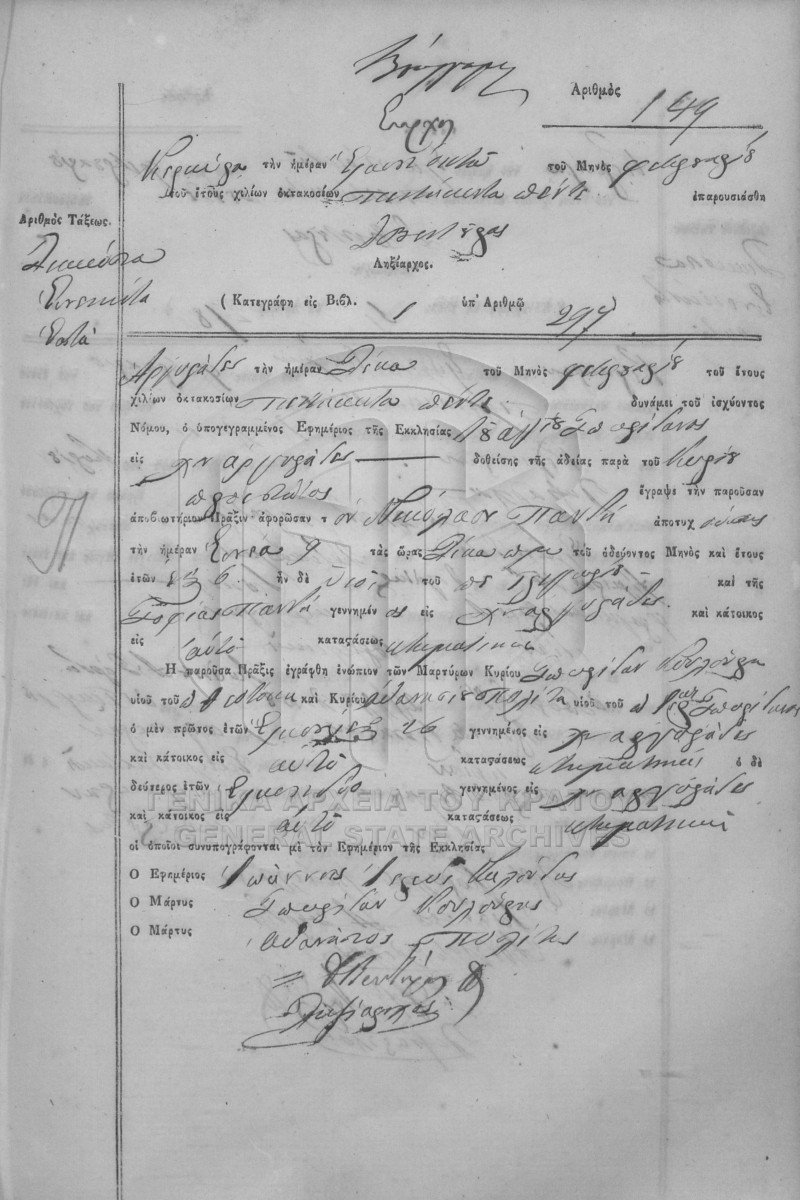 Ἀριθμὸς 149
Κερκύρα τὴν ἡμέραν Εἴκοσι ὀκτὼ τοῦ Μηνὸς φεβρουαρίου
τοῦ ἔτους χιλίων ὀκτακοσίων πεντήκοντα πέντε ἐπαρουσιάσθη
Ληξίαρχος.
Ἀριθμὸς Τάξεως.
Διακόσια
Ἐννενήντα
Ἑπτά
(Κατεγράφη εἰς Βιβλ. 1 ὑπ' Ἀριθμῷ 297)
Ἀργυράδες τὴν ἡμέραν Δέκα τοῦ Μηνὸς φεβρουαρίου τοῦ ἔτους
χιλίων ὀκτακοσίων πεντήκοντα πέντε δυνάμει τοῦ ἰσχύοντος
Νόμου, ὁ ὑπογεγραμμένος Ἐφημέριος τῆς Ἐκκλησίας τοῦ ἁγίου Σπυρίδωνος
εἰς χν αργυράδες δοθείσης τῆς ἀδείας παρὰ τοῦ Κυρίου
προεστῶτος ἔγραψε τὴν παροῦσαν
ἀποβιωτήριον Πρᾶξιν ἀφορῶσαν τὸν Νικόλαον Παντῆ ἀποτυχ
τὴν ἡμέραν Ἐννέα 9 τὰς ὥρας Δέκα πμ τοῦ ὁδεύοντος Μηνὸς καὶ ἔτους
ἐτῶν ἕξ 6 ἦν δὲ υἱὸς τοῦ καὶ τῆς
Σοφίας Παντῆ γεννημένος εἰς χν αργυράδες καὶ κάτοικος
εἰς αὐτὸ καταστάσεως κτηματικῆς
Ἡ παροῦσα Πρᾶξις ἐγράφθη ἐνώπιον τῶν Μαρτύρων Κυρίου Σπυρίδων Κουλούρη
υἱοῦ τοῦ καὶ Κυρίου Αθανασίου Πολίτη υἱοῦ τοῦ
ὁ μὲν πρῶτος ἐτῶν Εἴκοσι ἕξ 26 γεννημένος εἰς χν αργυράδες
καὶ κάτοικος εἰς αὐτὸ καταστάσεως κτηματικῆς ὁ δὲ
δεύτερος ἐτῶν Εἴκοσι δύο γεννημένος εἰς χν αργυράδες
καὶ κάτοικος εἰς αὐτὸ καταστάσεως κτηματικῆς
οἱ ὁποῖοι συνυπογράφονται μὲ τὸν Ἐφημέριον τῆς Ἐκκλησίας
Ὁ Ἐφημέριος Ἰωάννης Ἱερεὺς
Ὁ Μάρτυς Σπυρίδων Κουλούρης
Ὁ Μάρτυς αθανάσιος Πολίτης
Ληξίαρχος
ΓΕΝΙΚΑ ΑΡΧΕΙΑ ΤΟΥ ΚΡΑΤΟΥΣ
GENERAL STATE ARCHIVES